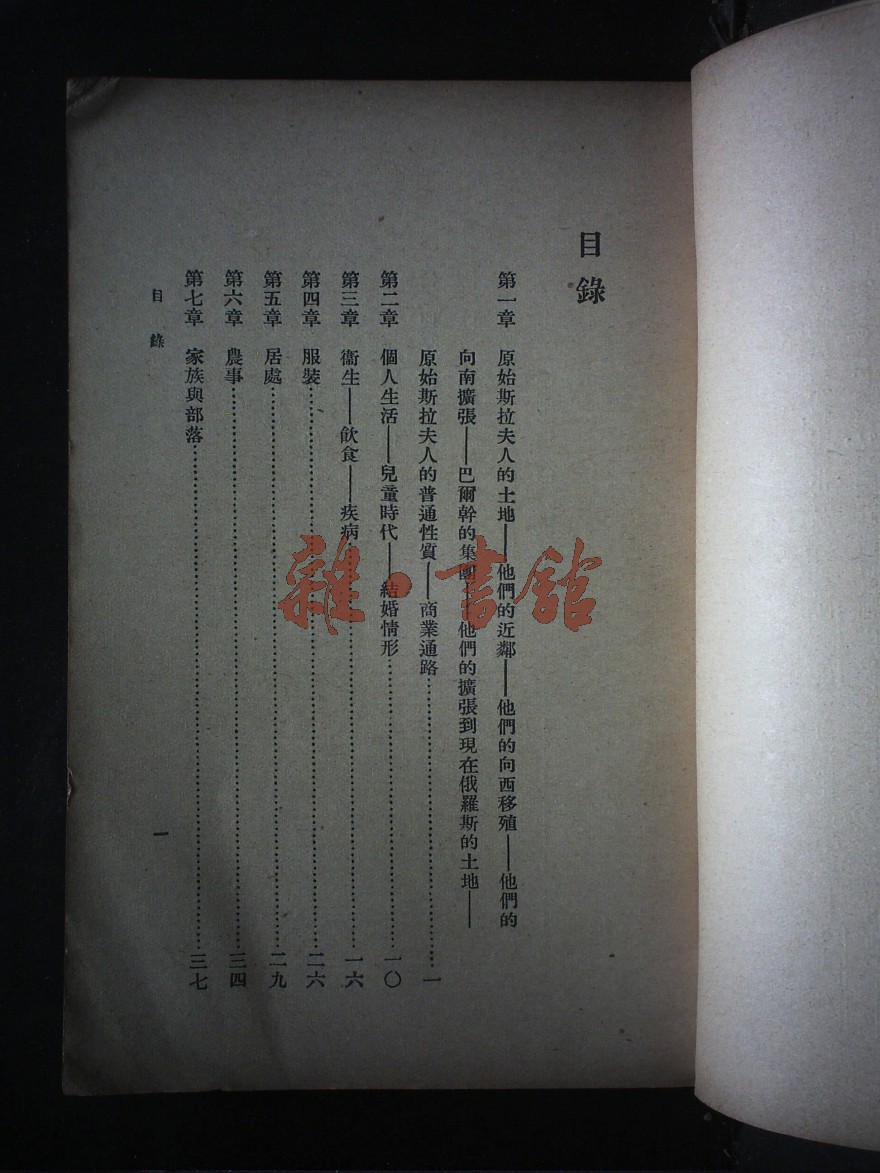 目錄
第一章　原始斯拉夫人的土地——他們的近鄰——他們的向西移殖——他們的
向南擴張——巴爾幹的集團——他們的擴張到現在俄羅斯的土地——
原始斯拉夫人的普通性質——商業通路…………一
第二章　個人生活——兒童時代——結婚情形…………一〇
第三章　衞生——飲食——疾病…………一六
第四章　服裝…………二六
第五章　居處…………二九
第六章　農事…………三四
第七章　家族與部落…………三七
目錄
一
雜·書館